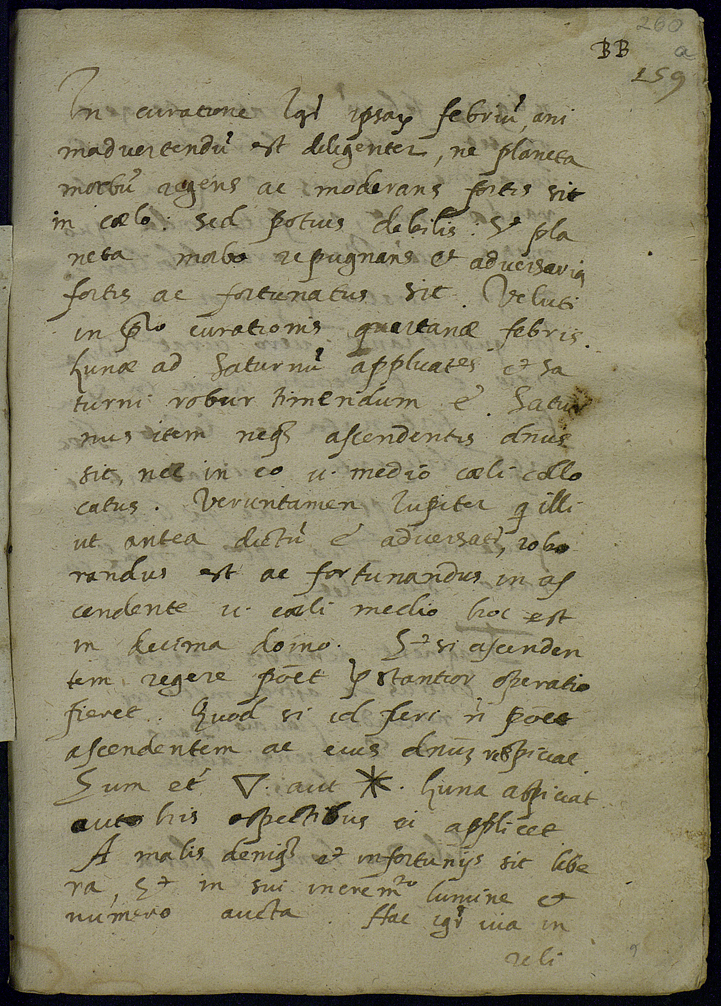 260
BB a
159
In curatione Igr̃ ipsaꝝ febriũ, ani
madvertendũ est diligenter, ne planeta
morbũ regens ac moderans fortis sit
in cœlo: sed potius debilis: Et pla
neta morbo repugnans et adversariꝰ
fortis ac fortunatus sit. Veluti
in curationis quartanæ febris.
Lunæ ad Saturnũ applicatẽs et Sa
turni robur timendum ẽ. Satur
nus item neqꝫ ascendentis dñus
sit, nec in eo u. medio cœli collo
catus. Veruntamen Iupiter q illi
ut antea dictũ ẽ adversatr̃, robo
randus est ac fortunandus in as
cendente u. cœli medio hoc est
in decima domo. Et si ascenden
tem regere põet p̃stantior operatio
fieret. Quod si id fieri ñ põet
ascendentem ac eius dñuꝫ respiciat
Sum et ▽. aut ✶. Luna aspiciat
aut his aspectibus ei applicet
A malis deniqꝫ et infortunijs sit libe
ra, Et in sui increm̃to lumine et
numero aucta. Hac igr̃ via in
reli